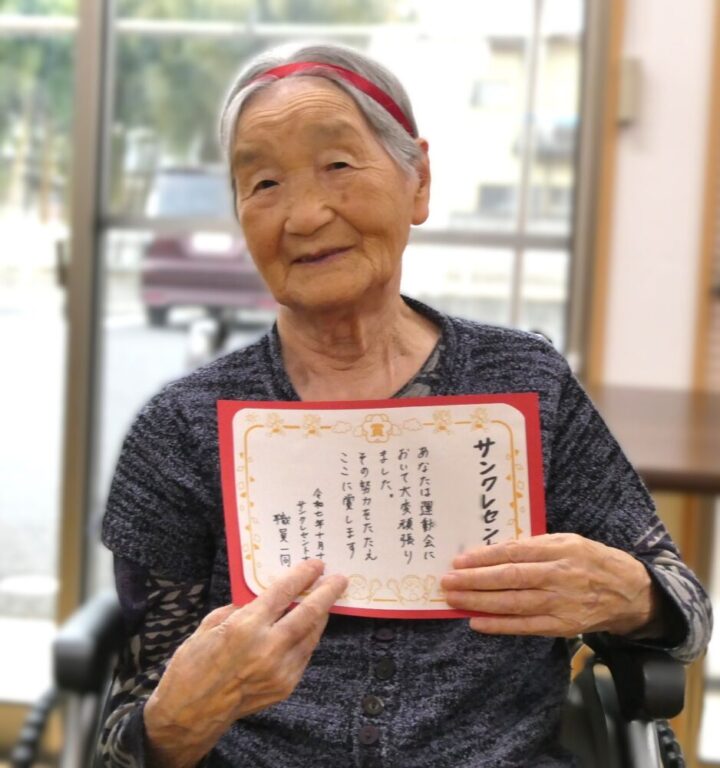 賞
サンクレセン
あなたは運動会に
おいて大変頑張り
ました。
その努力をたたえ
ここに賞します
令和七年十月十
サンクレセント
職員一同